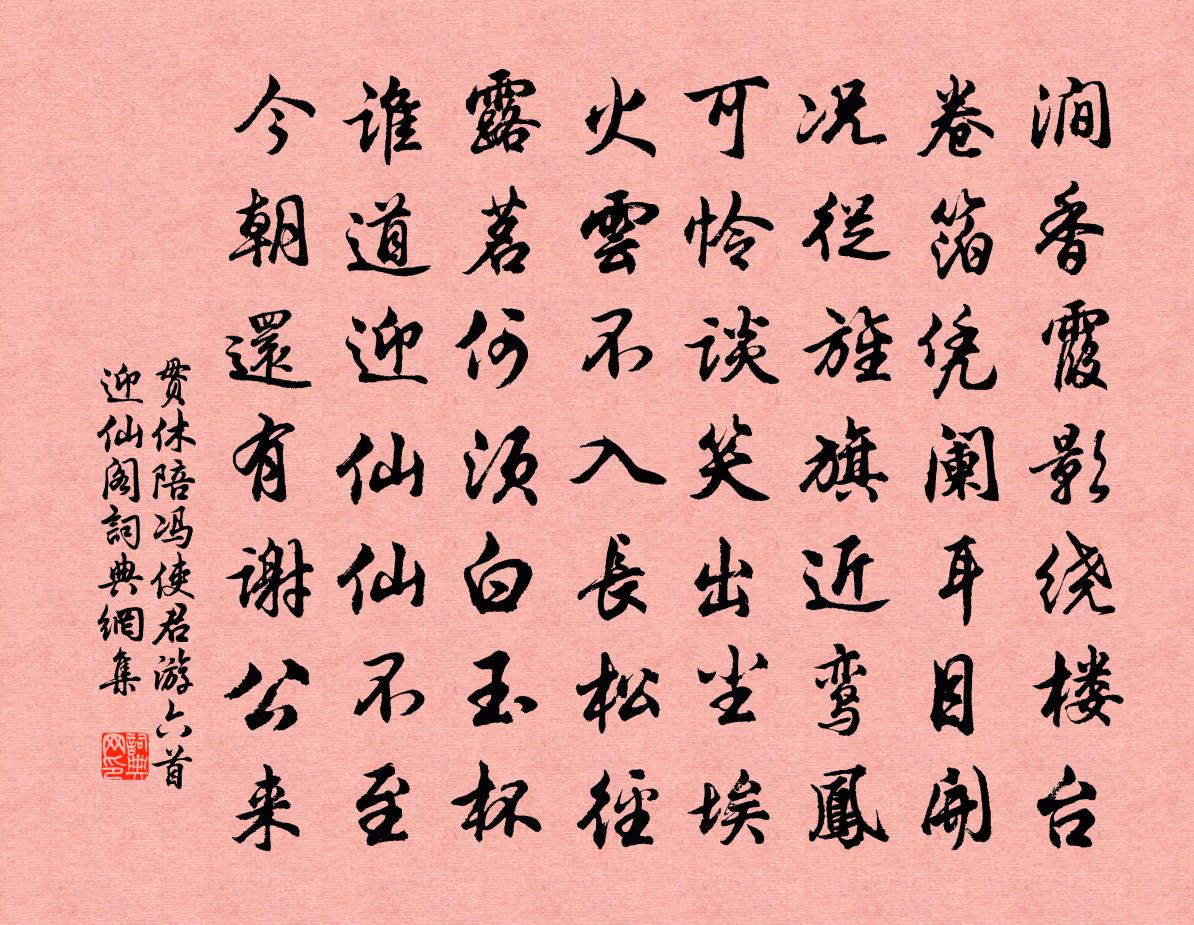 涧香霞影绕楼台
卷箔凭阑耳目开
况從旌旗近鸾鳳
可怜谈笑出尘埃
火雲不入長松徑
露茗何须白玉杯
谁道迎仙仙不至
今朝還有謝公来
贯休陪冯使君游六首
迎仙阁詞典網集
詞典
网印